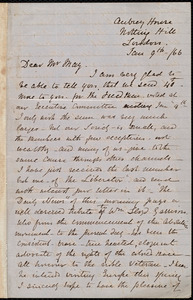 Aubrey House
Notting Hill
London.
Jan 9th /66
Dear Mr May,
I am very glad to
be able to tell you that we send 40
more to you for the Freedmen voted at
our Executive Committee Jan 9th
I only wish the sum was very much
larger but our Society is small, and
the members with few exceptions not
wealthy and many of us give to the
same cause through other channels
I have just received the last number
but one of the Liberator and see
with interest your letter in it. The
Daily News of this morning pays a
well deserved tribute to Mr Lloyd Garrison
who from the commencement of the
movement to the present day has been the
consistent, brave, true hearted, eloquent
advocate of the rights of the black race.
All honour to the noble veteran. Has
he intend visiting Europe this spring
I sincerely hope to have the pleasure of